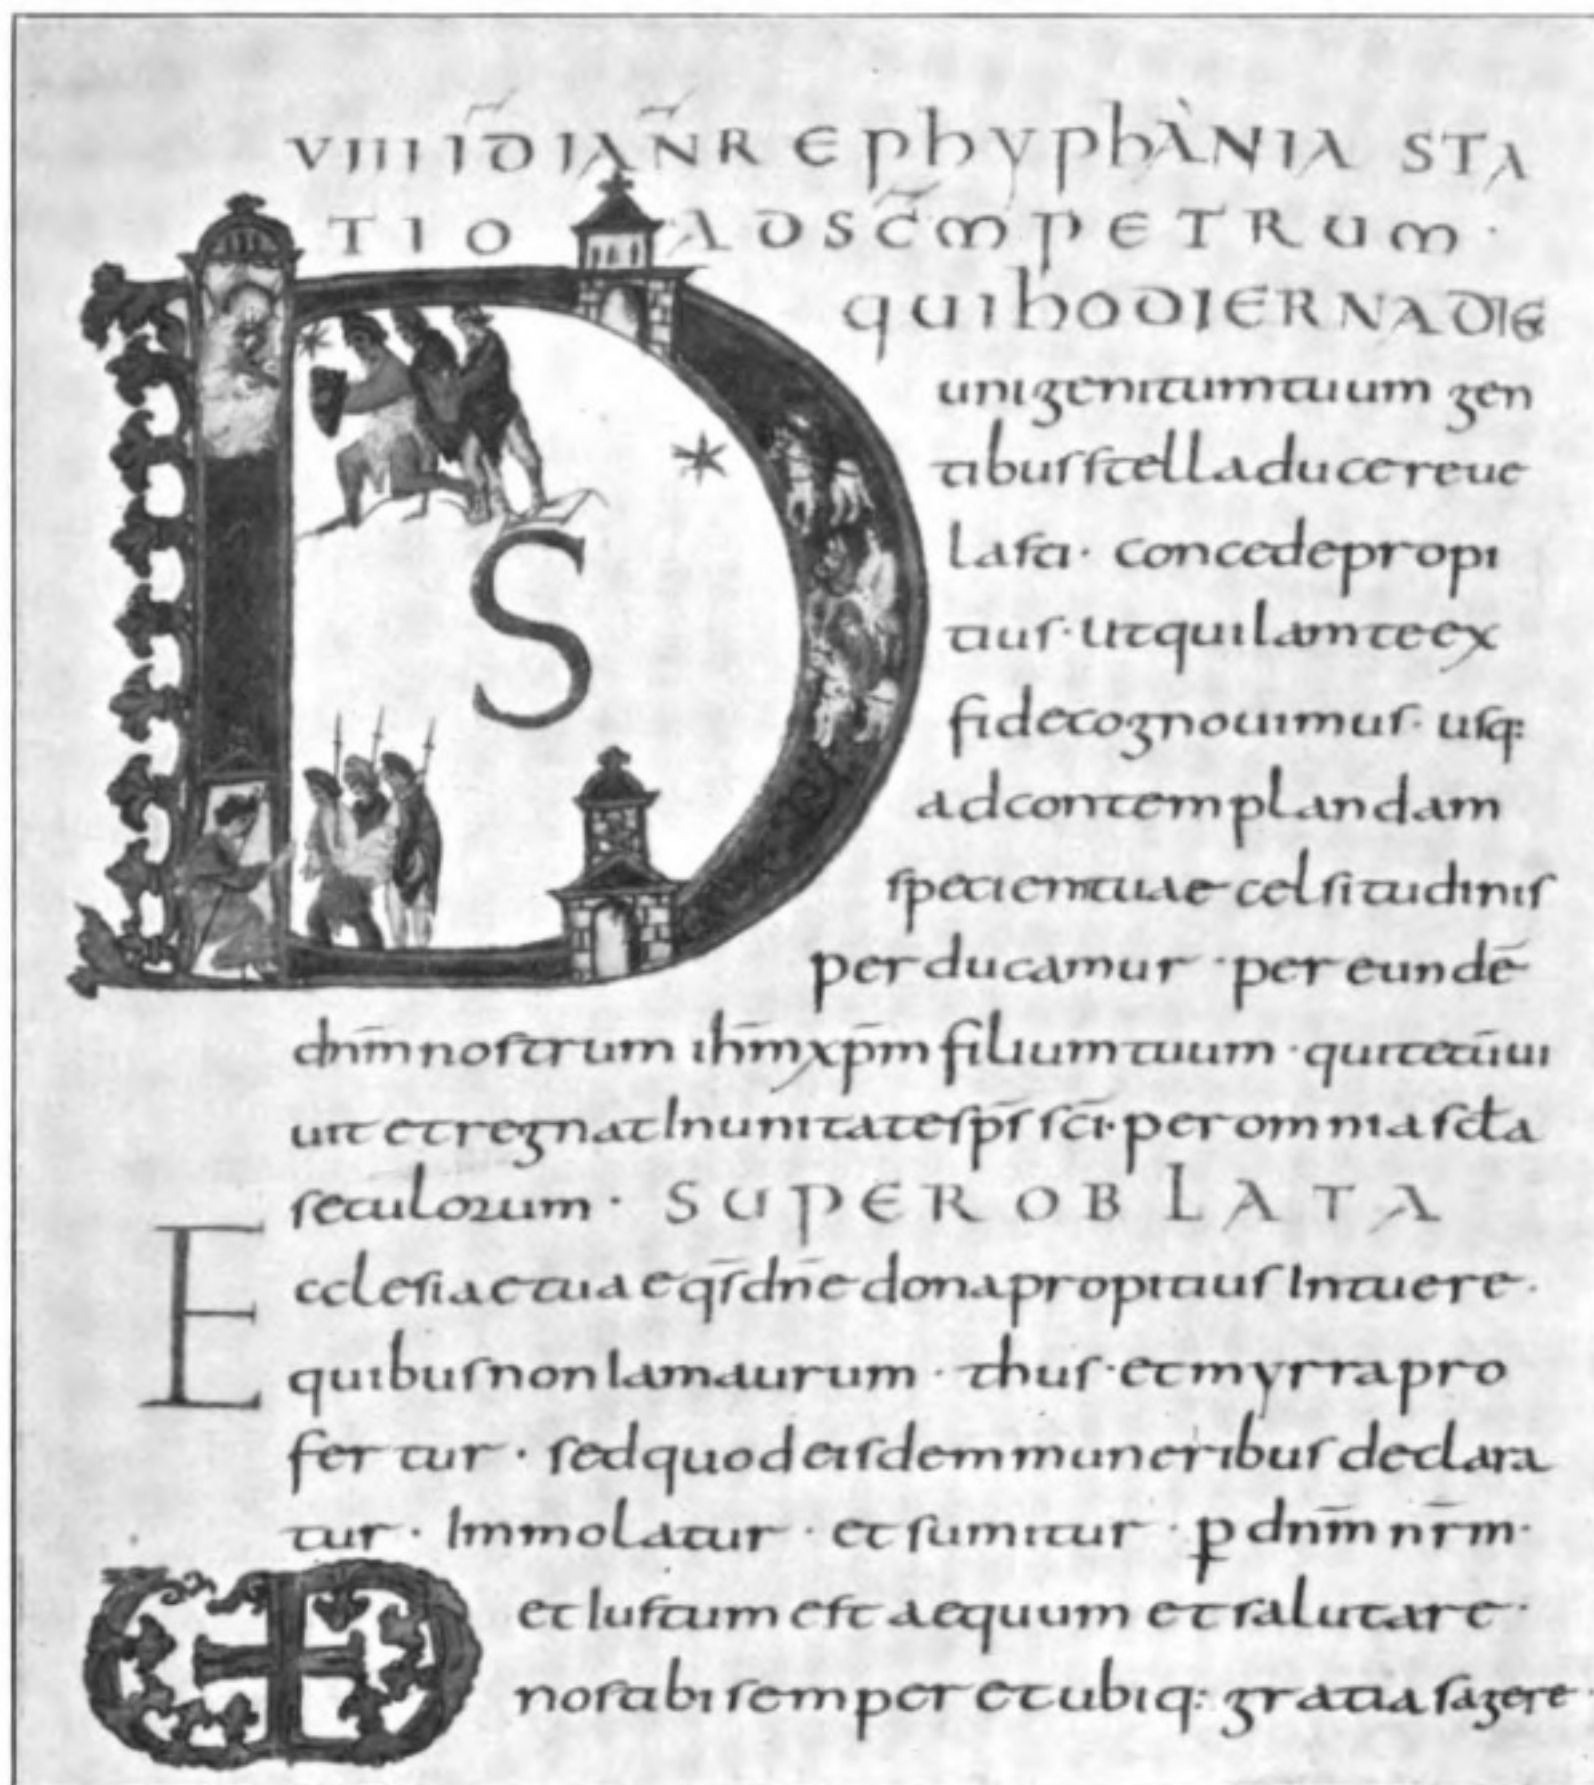 VIIII ID IAN̄R EPhYPhANIA STA
TIO AD SC̄M PETRUM ·
DS QUI hODIERNA DIE
unigenitum tuum gen
tibus stella duce reue
lasti · concede propi
tius · ut qui iam te ex
fide cognouimus · usq:
ad contemplandam
speciem tuae celsitudinis
perducamur · per eundē
dn̄m nostrum ih̄m xp̄m filium tuum · qui tecū ui
uit et regnat In unitate sp̄s sc̄i · per omnia scła
seculorum · SUPER OBLATA
Ecclesiae tuae qs̄ dn̄e dona propitius Intuere ·
quibus non Iam aurum · thus · et myrra pro
fertur · sed quod eisdem muneribus declara
tur · Immolatur · et sumitur · ꝑ dn̄m nr̄m ·
et Iustum est aequum et salutare ·
nos tibi semper et ubiq: gratias agere